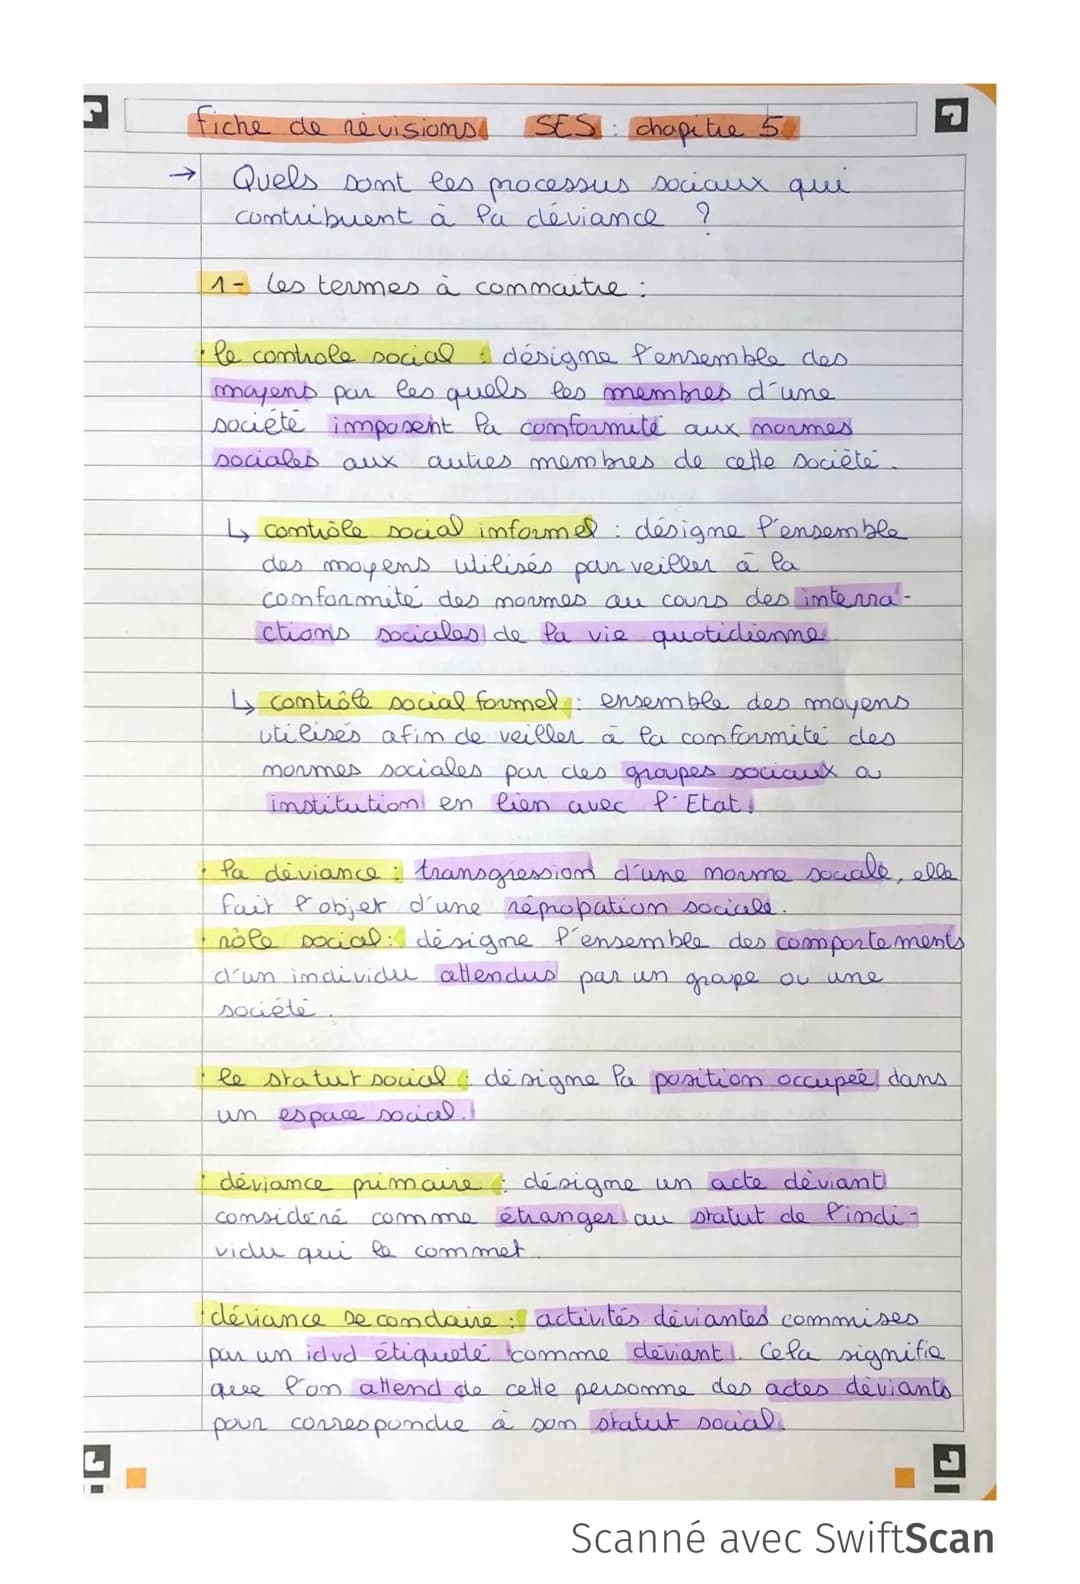 fiche de révisions SES : chapitre 5
→ Quels sont les processus sociaux qui
contribuent à la déviance ?
1- Les termes à connaitre :
· le controle social : désigne l'ensemble des
moyens par les quels les membres d'une
société imposent la conformité aux normes
sociales aux autres membres de cette société.
↳ contrôle social informel : désigne l'ensemble
des moyens utilisés par veiller à la
conformité des normes au cours des interra-
ctions sociales de la vie quotidienne
↳ contrôle social formel : ensemble des moyens
utilisés afin de veiller à la conformité des
normes sociales par des groupes sociaux a
institution en lien avec l'Etat.
· la déviance : transgression d'une norme sociale, elle
fait l'objet d'une réprobation sociale.
· rôle social : désigne l'ensemble des comportements
d'un individu attendus par un groupe ou une
société.
· le statut social : désigne la position occupée dans
un espace social.
· déviance primaire : désigne un acte déviant
considéré comme étranger au statut de l'indi-
vidu qui le commet.
· déviance secondaire : activités déviantes commises
par un idvd étiqueté comme déviant. Cela signifie
que l'on attend de cette personne des actes déviants
pour correspondre à son statut social.
Scanné avec SwiftScan